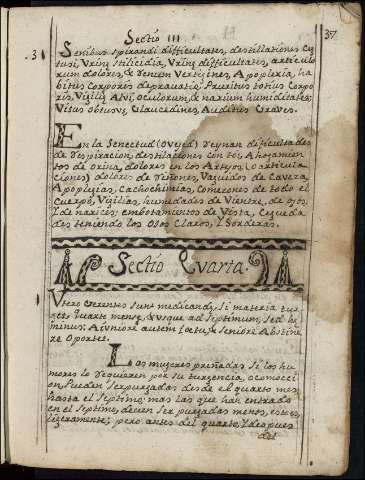 Sectio III
37
31
Senibus spirandi difficultates, destillationes cum
tusi, Vrinę stilicidia, Vrinę difficultates, articulo
rum dolores, & Renum Vertigines, Apoplexia, ha
bitus corporis depravatio, Pruritus totius Corpo
ris, Vigilię Alvi, oculorum, & narium humiditates,
Visus obtusus, Glaucedines, Auditus Graves.
En la Senectud (o Vejez) Reynan dificultades
de Respiracion, destilaciones con tos, Ahogamien
tos de orina, dolores en los Artejos, (o articula
ciones) dolores de Riñones, Vaguidos de Caveza,
Apoplexias, Cachochimias, Comezones de todo el
cuerpo, Vigilias, humedades de Vientre, de ojos,
Y de narices: embotamientos de Vista, Cegueda
des teniendo los ojos Claros, Y Sorderas.
Sectio Quarta.
Vtero Gerentes sunt medicandę, si materia tur
get quarto mense, & usque ad septimum, sed hę
minus: Auniore autem foetu, & seniore Abstine
re Oportet.
Las mujeres preñadas si los hu
mores lo Requieren por su turgencia, o comocci
on, pueden ser purgadas desde el quarto mes
hasta el septimo: mas las que han entrado
en el septimo, deven ser purgadas menos, esto es,
ligeramente; pero antes del quarto, Y despues
del